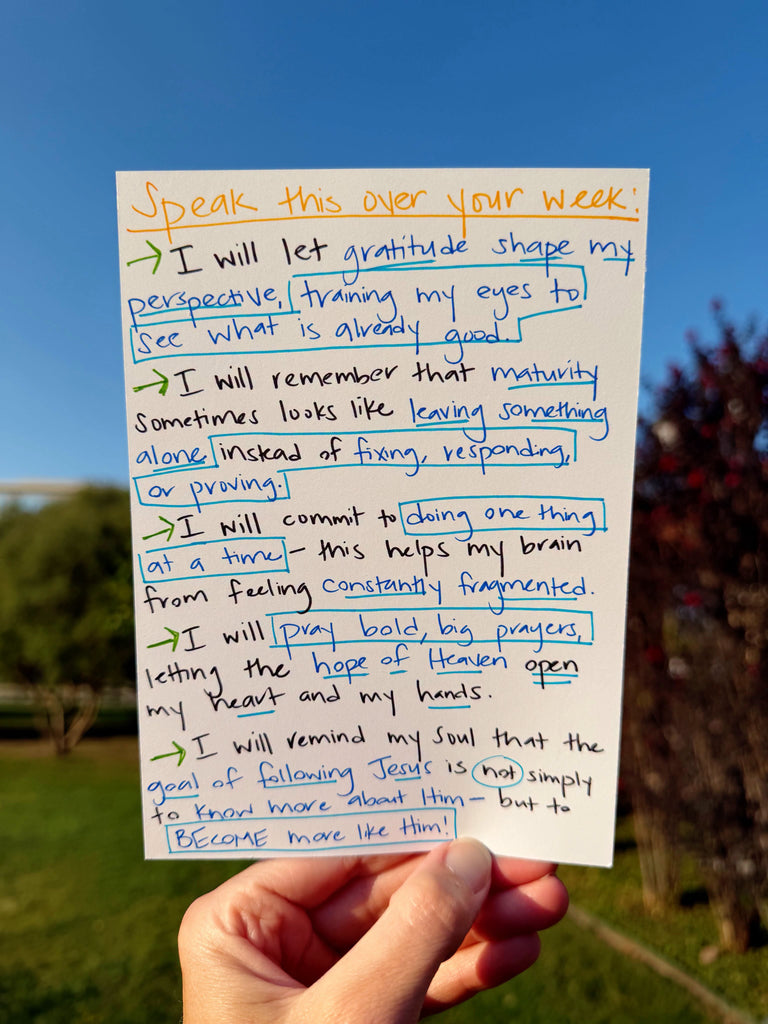 Speak this over your week:
→ I will let gratitude shape my
perspective, training my eyes to
see what is already good.
→ I will remember that maturity
sometimes looks like leaving something
alone instead of fixing, responding,
or proving.
→ I will commit to doing one thing
at a time – this helps my brain
from feeling constantly fragmented.
→ I will pray bold, big prayers,
letting the hope of Heaven open
my heart and my hands.
→ I will remind my soul that the
goal of following Jesus is not simply
to know more about Him – but to
BECOME more like Him!